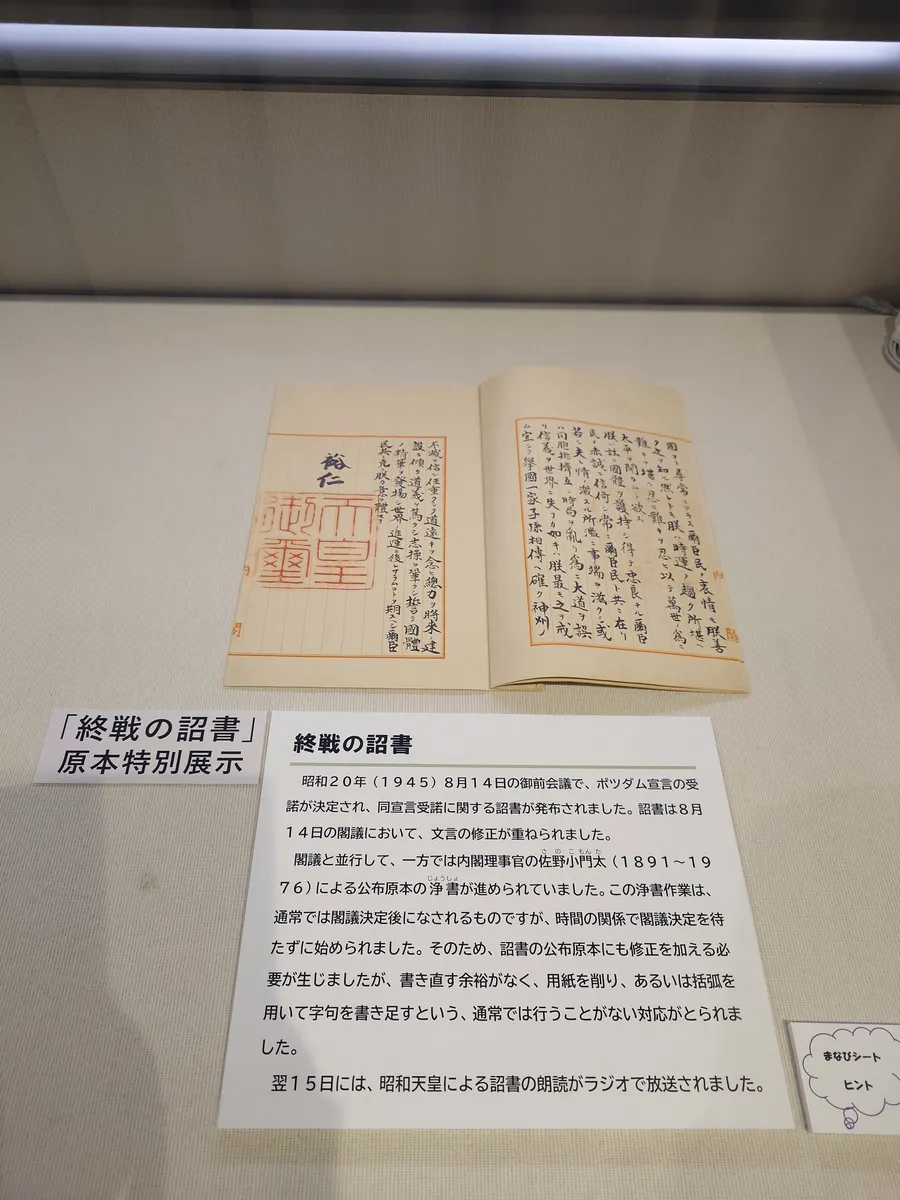 因ヨリ尋常ニアラス爾臣民ノ衷情モ朕善
ク之ヲ知ル然レトモ朕ハ時運ノ趨ク所堪ヘ
難キヲ堪ヘ忍ヒ難キヲ忍ヒ以テ萬世ノ爲ニ
太平ヲ開カムト欲ス
朕ハ茲ニ國體ヲ護持シ得テ忠良ナル爾臣
民ノ赤誠ニ信倚シ常ニ爾臣民ト共ニ在リ
若シ夫レ情ノ激スル所濫ニ事端ヲ滋クシ或
ハ同胞排擠互ニ時局ヲ亂リ爲ニ大道ヲ誤
リ信義ヲ世界ニ失フカ如キハ朕最モ之ヲ戒
ム宜シク擧國一家子孫相傳ヘ確ク神州ノ
不滅ヲ信シ任重クシテ道遠キヲ念ヒ總力ヲ將來ノ建
設ニ傾ケ道義ヲ篤クシ志操ヲ鞏クシ誓テ國體
ノ精華ヲ發揚シ世界ノ進運ニ後レサラムコトヲ期スヘシ爾臣
民其レ克ク朕カ意ヲ體セヨ
裕仁
天皇
御璽
内
閣
内
閣
「終戦の詔書」
原本特別展示
終戦の詔書
昭和20年(1945)8月14日の御前会議で、ポツダム宣言の受
諾が決定され、同宣言受諾に関する詔書が発布されました。詔書は8月
14日の閣議において、文言の修正が重ねられました。
閣議と並行して、一方では内閣理事官の佐野小門太(1891~19
さのこもんた
76)による公布原本の浄書が進められていました。この浄書作業は、
じょうしょ
通常では閣議決定後になされるものですが、時間の関係で閣議決定を待
たずに始められました。そのため、詔書の公布原本にも修正を加える必
要が生じましたが、書き直す余裕がなく、用紙を削り、あるいは括弧を
用いて字句を書き足すという、通常では行うことがない対応がとられま
した。
翌15日には、昭和天皇による詔書の朗読がラジオで放送されました。
まなびシート
ヒント